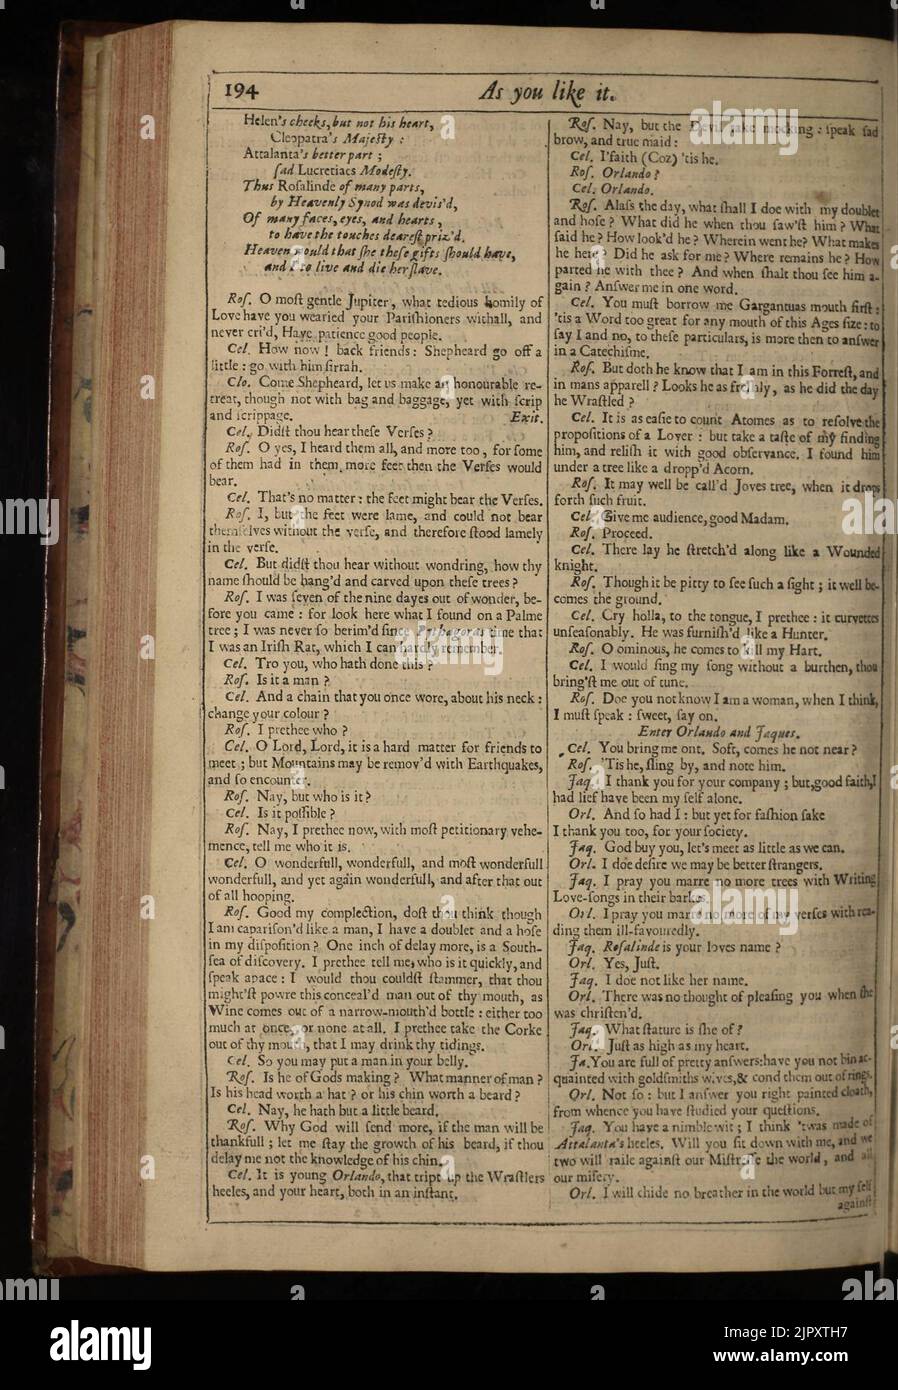 194
As you like it.
Helen's cheeks, but not his heart,
Cleopatra's Majeſty :
Attalanta's better part ;
ſad Lucretiaes Modeſty.
Thus Roſalinde of many parts,
by Heavenly Synod was devis'd,
Of many faces, eyes, and hearts,
to have the touches deareſt priz'd.
Heaven would that ſhe theſe gifts ſhould have,
and I to live and die her ſlave.
Roſ. O moſt gentle Jupiter, what tedious homily of
Love have you wearied your Pariſhioners withall, and
never cri'd, Have patience good people.
Cel. How now ! back friends : Shepheard go off a
little : go with him ſirrah.
Clo. Come Shepheard, let us make an honourable re-
treat, though not with bag and baggage, yet with ſcrip
and ſcrippage. Exit.
Cel. Didſt thou hear theſe Verſes ?
Roſ. O yes, I heard them all, and more too, for ſome
of them had in them more feet then the Verſes would
bear.
Cel. That's no matter : the feet might bear the Verſes.
Roſ. I, but the feet were lame, and could not bear
themſelves without the verſe, and therefore ſtood lamely
in the verſe.
Cel. But didſt thou hear without wondring, how thy
name ſhould be hang'd and carved upon theſe trees ?
Roſ. I was ſeven of the nine dayes out of wonder, be-
fore you came : for look here what I found on a Palme
tree ; I was never ſo berim'd ſince Pythagoras time that
I was an Iriſh Rat, which I can hardly remember.
Cel. Tro you, who hath done this ?
Roſ. Is it a man ?
Cel. And a chain that you once wore, about his neck :
change your colour ?
Roſ. I prethee who ?
Cel. O Lord, Lord, it is a hard matter for friends to
meet ; but Mountains may be remov'd with Earthquakes,
and ſo encounter.
Roſ. Nay, but who is it ?
Cel. Is it poſſible ?
Roſ. Nay, I prethee now, with moſt petitionary vehe-
mence, tell me who it is.
Cel. O wonderfull, wonderfull, and moſt wonderfull
wonderfull, and yet again wonderfull, and after that out
of all hooping.
Roſ. Good my complection, doſt thou think though
I am capariſon'd like a man, I have a doublet and a hoſe
in my diſpoſition ? One inch of delay more, is a South-
ſea of diſcovery. I prethee tell me, who is it quickly, and
ſpeak apace : I would thou couldſt ſtammer, that thou
might'ſt powre this conceal'd man out of thy mouth, as
Wine comes out of a narrow-mouth'd bottle : either too
much at once, or none at all. I prethee take the Corke
out of thy mouth, that I may drink thy tidings.
Cel. So you may put a man in your belly.
Roſ. Is he of Gods making ? What manner of man ?
Is his head worth a hat ? or his chin worth a beard ?
Cel. Nay, he hath but a little beard.
Roſ. Why God will ſend more, if the man will be
thankfull ; let me ſtay the growth of his beard, if thou
delay me not the knowledge of his chin.
Cel. It is young Orlando, that tript up the Wraſtlers
heeles, and your heart, both in an inſtant.
Roſ. Nay, but the Devil take mocking : ſpeak ſad
brow, and true maid :
Cel. I'faith (Coz) 'tis he.
Roſ. Orlando ?
Cel. Orlando.
Roſ. Alaſs the day, what ſhall I doe with my doublet
and hoſe ? What did he when thou ſaw'ſt him ? What
ſaid he ? How look'd he ? Wherein went he ? What makes
he here ? Did he ask for me ? Where remains he ? How
parted he with thee ? And when ſhalt thou ſee him a-
gain ? Anſwer me in one word.
Cel. You muſt borrow me Gargantuas mouth firſt :
'tis a Word too great for any mouth of this Ages ſize : to
ſay I and no, to theſe particulars, is more then to anſwer
in a Catechiſme.
Roſ. But doth he know that I am in this Forreſt, and
in mans apparell ? Looks he as freſhly, as he did the day
he Wraſtled ?
Cel. It is as eaſie to count Atomes as to reſolve the
propoſitions of a Lover : but take a taſte of my finding
him, and reliſh it with good obſervance. I found him
under a tree like a dropp'd Acorn.
Roſ. It may well be call'd Joves tree, when it drops
forth ſuch fruit.
Cel. Give me audience, good Madam.
Roſ. Proceed.
Cel. There lay he ſtretch'd along like a Wounded
knight.
Roſ. Though it be pitty to ſee ſuch a ſight ; it well be-
comes the ground.
Cel. Cry holla, to the tongue, I prethee : it curvettes
unſeaſonably. He was furniſh'd like a Hunter.
Roſ. O ominous, he comes to kill my Hart.
Cel. I would ſing my ſong without a burthen, thou
bring'ſt me out of tune.
Roſ. Doe you not know I am a woman, when I think,
I muſt ſpeak : ſweet, ſay on.
Enter Orlando and Jaques.
Cel. You bring me ont. Soft, comes he not near ?
Roſ. 'Tis he, ſling by, and note him.
Jaq. I thank you for your company ; but, good faith, I
had lief have been my ſelf alone.
Orl. And ſo had I : but yet for faſhion ſake
I thank you too, for your ſociety.
Jaq. God buy you, let's meet as little as we can.
Orl. I doe deſire we may be better ſtrangers.
Jaq. I pray you marre no more trees with Writing
Love-ſongs in their barkes.
Orl. I pray you marre no more of my verſes with rea-
ding them ill-favouredly.
Jaq. Roſalinde is your loves name ?
Orl. Yes, Juſt.
Jaq. I doe not like her name.
Orl. There was no thought of pleaſing you when ſhe
was chriſten'd.
Jaq. What ſtature is ſhe of ?
Orl. Juſt as high as my heart.
Ja. You are full of pretty anſwers: have you not bin ac-
quainted with goldſmiths wives, & cond them out of rings.
Orl. Not ſo : but I anſwer you right painted cloath,
from whence you have ſtudied your queſtions.
Jaq. You have a nimble wit ; I think 'twas made of
Attalanta's heeles. Will you ſit down with me, and we
two will raile againſt our Miſtreſſe the world, and all
our miſery.
Orl. I will chide no breather in the world but my ſelf
againſt
alamy
Image ID: 2JPXTH7
www.alamy.com